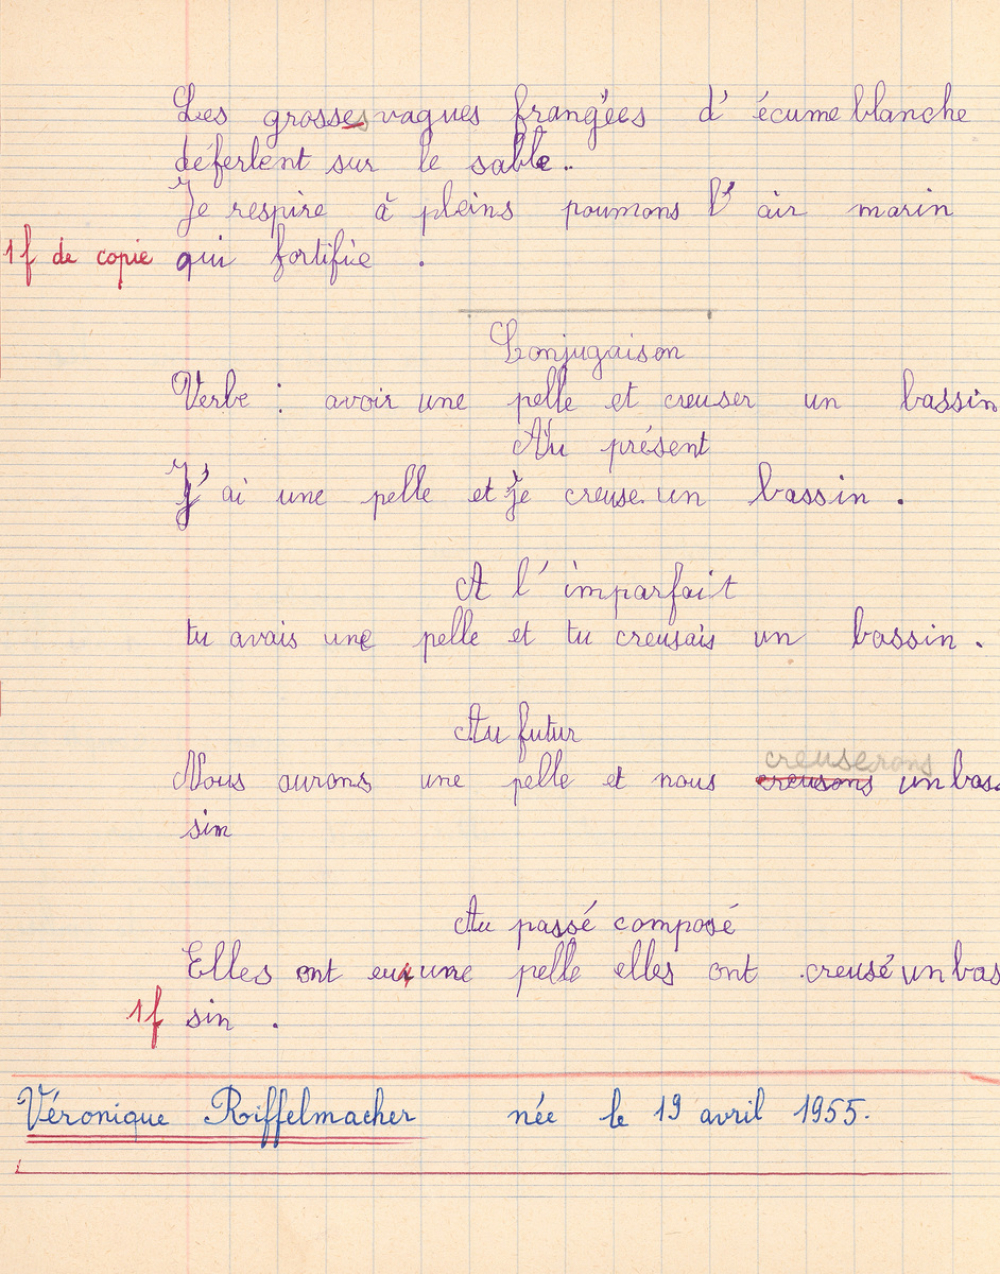 Les grosses vagues frangées d'écume blanche
déferlent sur le sable.
Je respire à pleins poumons l'air marin
1f de copie qui fortifie.
Conjugaison
Verbe : avoir une pelle et creuser un bassin
Au présent
J'ai une pelle et je creuse un bassin.
A l'imparfait
tu avais une pelle et tu creusais un bassin.
Au futur
creuserons
Nous aurons une pelle et nous creusons un bas-
sin
Au passé composé
Elles ont eu une pelle elles ont creusé un bas
1f sin.
Véronique Riffelmacher née le 19 avril 1955.